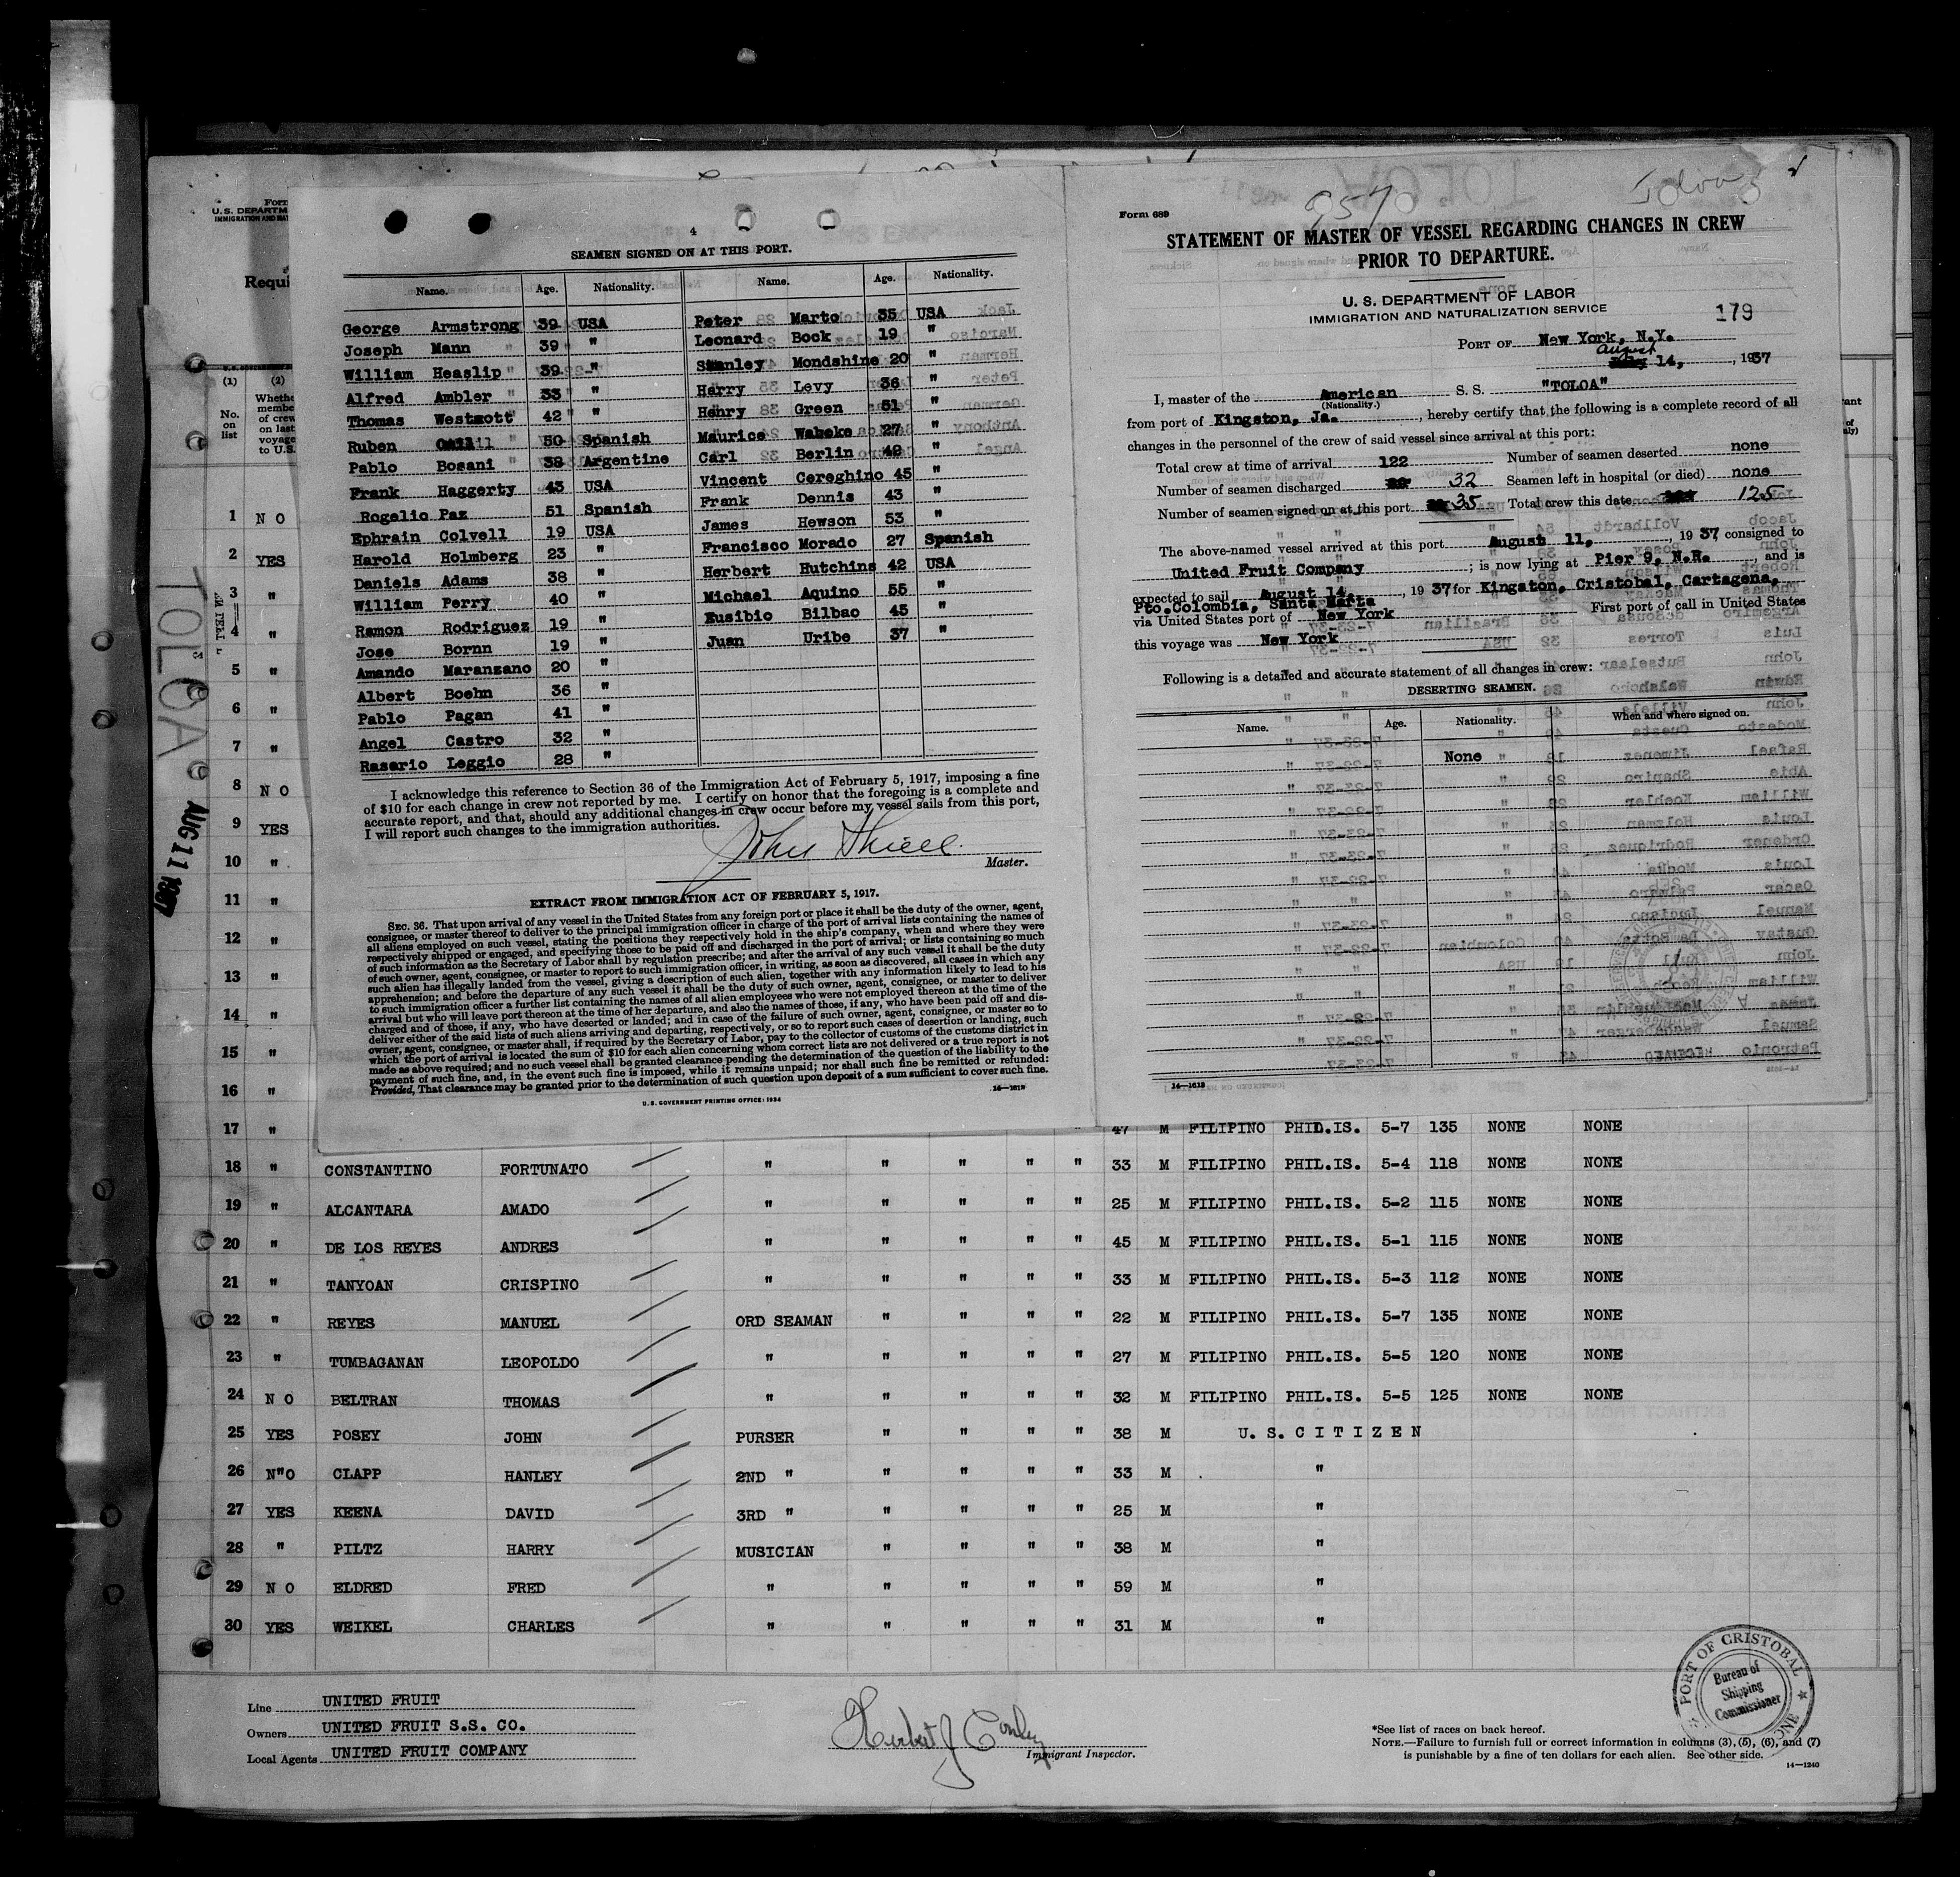 4
SEAMEN SIGNED ON AT THIS PORT.
Name. Age. Nationality. Name. Age. Nationality.
George Armstrong 39 USA Peter Marto 35 USA
Joseph Mann 39 " Leonard Bock 19 "
William Heaslip 39 " Stanley Mondshine 20 "
Alfred Ambler 33 " Harry Levy 36 "
Thomas Westmott 42 " Henry Green 51 "
Ruben 50 Spanish Maurice Wabeke 27 "
Pablo Bosani 38 Argentine Carl Berlin 42 "
Frank Haggerty 43 USA Vincent Cereghino 45 "
Rogelio Paz 51 Spanish Frank Dennis 43 "
Ephrain Colvell 19 USA James Hewson 53 "
Harold Holmberg 23 " Francisco Morado 27 Spanish
Daniels Adams 38 " Herbert Hutchins 42 USA
William Perry 40 " Michael Aquino 55 "
Ramon Rodriguez 19 " Eusibio Bilbao 45 "
Jose Bornn 19 " Juan Uribe 37 "
Amando Maranzano 20 "
Albert Boehn 36 "
Pablo Pagan 41 "
Angel Castro 32 "
Rasario Leggio 28 "
I acknowledge this reference to Section 36 of the Immigration Act of February 5, 1917, imposing a fine
of $10 for each change in crew not reported by me. I certify on honor that the foregoing is a complete and
accurate report, and that, should any additional changes in crew occur before my vessel sails from this port,
I will report such changes to the immigration authorities.
John Thiele
Master.
EXTRACT FROM IMMIGRATION ACT OF FEBRUARY 5, 1917.
SEC. 36. That upon arrival of any vessel in the United States from any foreign port or place it shall be the duty of the owner, agent,
consignee, or master thereof to deliver to the principal immigration officer in charge of the port of arrival lists containing the names of
all aliens employed on such vessel, stating the positions they respectively hold in the ship's company, when and where they were
respectively shipped or engaged, and specifying those to be paid off and discharged in the port of arrival; or lists containing so much
of such information as the Secretary of Labor shall by regulation prescribe; and after the arrival of any such vessel it shall be the duty
of such owner, agent, consignee, or master to report to such immigration officer, in writing, as soon as discovered, all cases in which any
such alien has illegally landed from the vessel, giving a description of such alien, together with any information likely to lead to his
apprehension; and before the departure of any such vessel it shall be the duty of such owner, agent, consignee, or master to deliver
to such immigration officer a further list containing the names of all alien employees who were not employed thereon at the time of the
arrival but who will leave port thereon at the time of her departure, and also the names of those, if any, who have been paid off and dis-
charged and of those, if any, who have deserted or landed; and in case of the failure of such owner, agent, consignee, or master so to
deliver either of the said lists of such aliens arriving and departing, respectively, or so to report such cases of desertion or landing, such
owner, agent, consignee, or master shall, if required by the Secretary of Labor, pay to the collector of customs of the customs district in
which the port of arrival is located the sum of $10 for each alien concerning whom correct lists are not delivered or a true report is not
made as above required; and no such vessel shall be granted clearance pending the determination of the question of the liability to the
payment of such fine, and, in the event such fine is imposed, while it remains unpaid; nor shall such fine be remitted or refunded:
Provided, That clearance may be granted prior to the determination of such question upon deposit of a sum sufficient to cover such fine.
U.S. GOVERNMENT PRINTING OFFICE: 1934
14—1618
9570
Toloa
Form 689
STATEMENT OF MASTER OF VESSEL REGARDING CHANGES IN CREW
PRIOR TO DEPARTURE.
U. S. DEPARTMENT OF LABOR
IMMIGRATION AND NATURALIZATION SERVICE
179
PORT OF New York, N.Y.
August 14, 1937
I, master of the American S. S. "TOLOA"
(Nationality.)
from port of Kingston, Ja. , hereby certify that the following is a complete record of all
changes in the personnel of the crew of said vessel since arrival at this port:
Total crew at time of arrival 122 Number of seamen deserted none
Number of seamen discharged 32 Seamen left in hospital (or died) none
Number of seamen signed on at this port 35 Total crew this date 125
The above-named vessel arrived at this port August 11, 1937 consigned to
United Fruit Company ; is now lying at Pier 9, N.R. , and is
expected to sail August 14, 1937 for Kingston, Cristobal, Cartagena,
Pto.Colombia, Santa Marta
via United States port of New York First port of call in United States
this voyage was New York
Following is a detailed and accurate statement of all changes in crew:
DESERTING SEAMEN.
Name. Age. Nationality. When and where signed on.
None
14—1618
Form
U. S. DEPARTM
IMMIGRATION AND NAT
Requi
(1) (2)
No. on list
Whethe
membe
of crew
on last
voyage
to U.S.
TOLOA
AUG 11 1937
1 N O
2 YES
3 "
4 "
5 "
6 "
7 "
8 N O
9 YES
10 "
11 "
12 "
13 "
14 "
15 "
16 "
17 " " 47 M FILIPINO PHIL.IS. 5-7 135 NONE NONE
18 " CONSTANTINO FORTUNATO " " " " " 33 M FILIPINO PHIL.IS. 5-4 118 NONE NONE
19 " ALCANTARA AMADO " " " " " 25 M FILIPINO PHIL.IS. 5-2 115 NONE NONE
20 " DE LOS REYES ANDRES " " " " " 45 M FILIPINO PHIL.IS. 5-1 115 NONE NONE
21 " TANYOAN CRISPINO " " " " " 33 M FILIPINO PHIL.IS. 5-3 112 NONE NONE
22 " REYES MANUEL ORD SEAMAN " " " " 22 M FILIPINO PHIL.IS. 5-7 135 NONE NONE
23 " TUMBAGANAN LEOPOLDO " " " " " 27 M FILIPINO PHIL.IS. 5-5 120 NONE NONE
24 N O BELTRAN THOMAS " " " " " 32 M FILIPINO PHIL.IS. 5-5 125 NONE NONE
25 YES POSEY JOHN PURSER " " " " 38 M U. S. C I T I Z E N
26 N"O CLAPP HANLEY 2ND " " " " " 33 M "
27 YES KEENA DAVID 3RD " " " " " 25 M "
28 " PILTZ HARRY MUSICIAN " " " " 38 M "
29 N O ELDRED FRED " " " " " 59 M "
30 YES WEIKEL CHARLES " " " " " 31 M "
Line UNITED FRUIT
Owners UNITED FRUIT S.S. CO.
Local Agents UNITED FRUIT COMPANY
Herbert J Conley
Immigrant Inspector.
*See list of races on back hereof.
NOTE.—Failure to furnish full or correct information in columns (3), (5), (6), and (7)
is punishable by a fine of ten dollars for each alien. See other side.
14—1240
PORT OF CRISTOBAL
Bureau of
Shipping
Commissioner